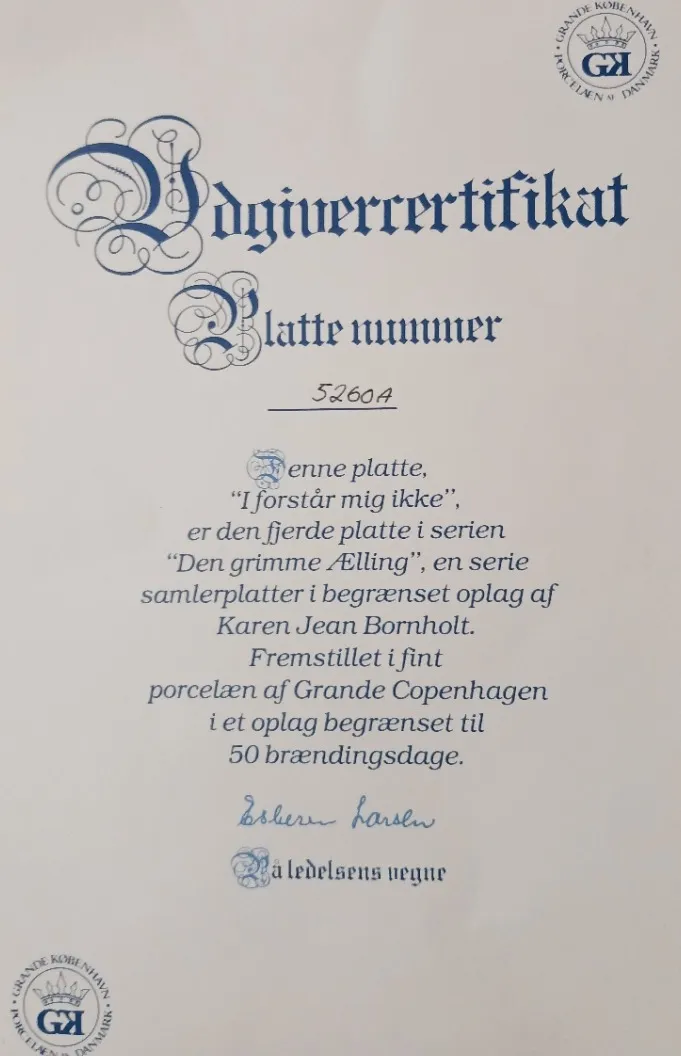 GRANDE KØBENHAVN • PORCELÆN AF DANMARK •
GK
Udgivercertifikat
Platte nummer
5260A
Denne platte,
“I forstår mig ikke”,
er den fjerde platte i serien
“Den grimme Ælling”, en serie
samlerplatter i begrænset oplag af
Karen Jean Bornholt.
Fremstillet i fint
porcelæn af Grande Copenhagen
i et oplag begrænset til
50 brændingsdage.
Esberen Larsen
På ledelsens vegne
GRANDE KØBENHAVN • PORCELÆN AF DANMARK •
GK